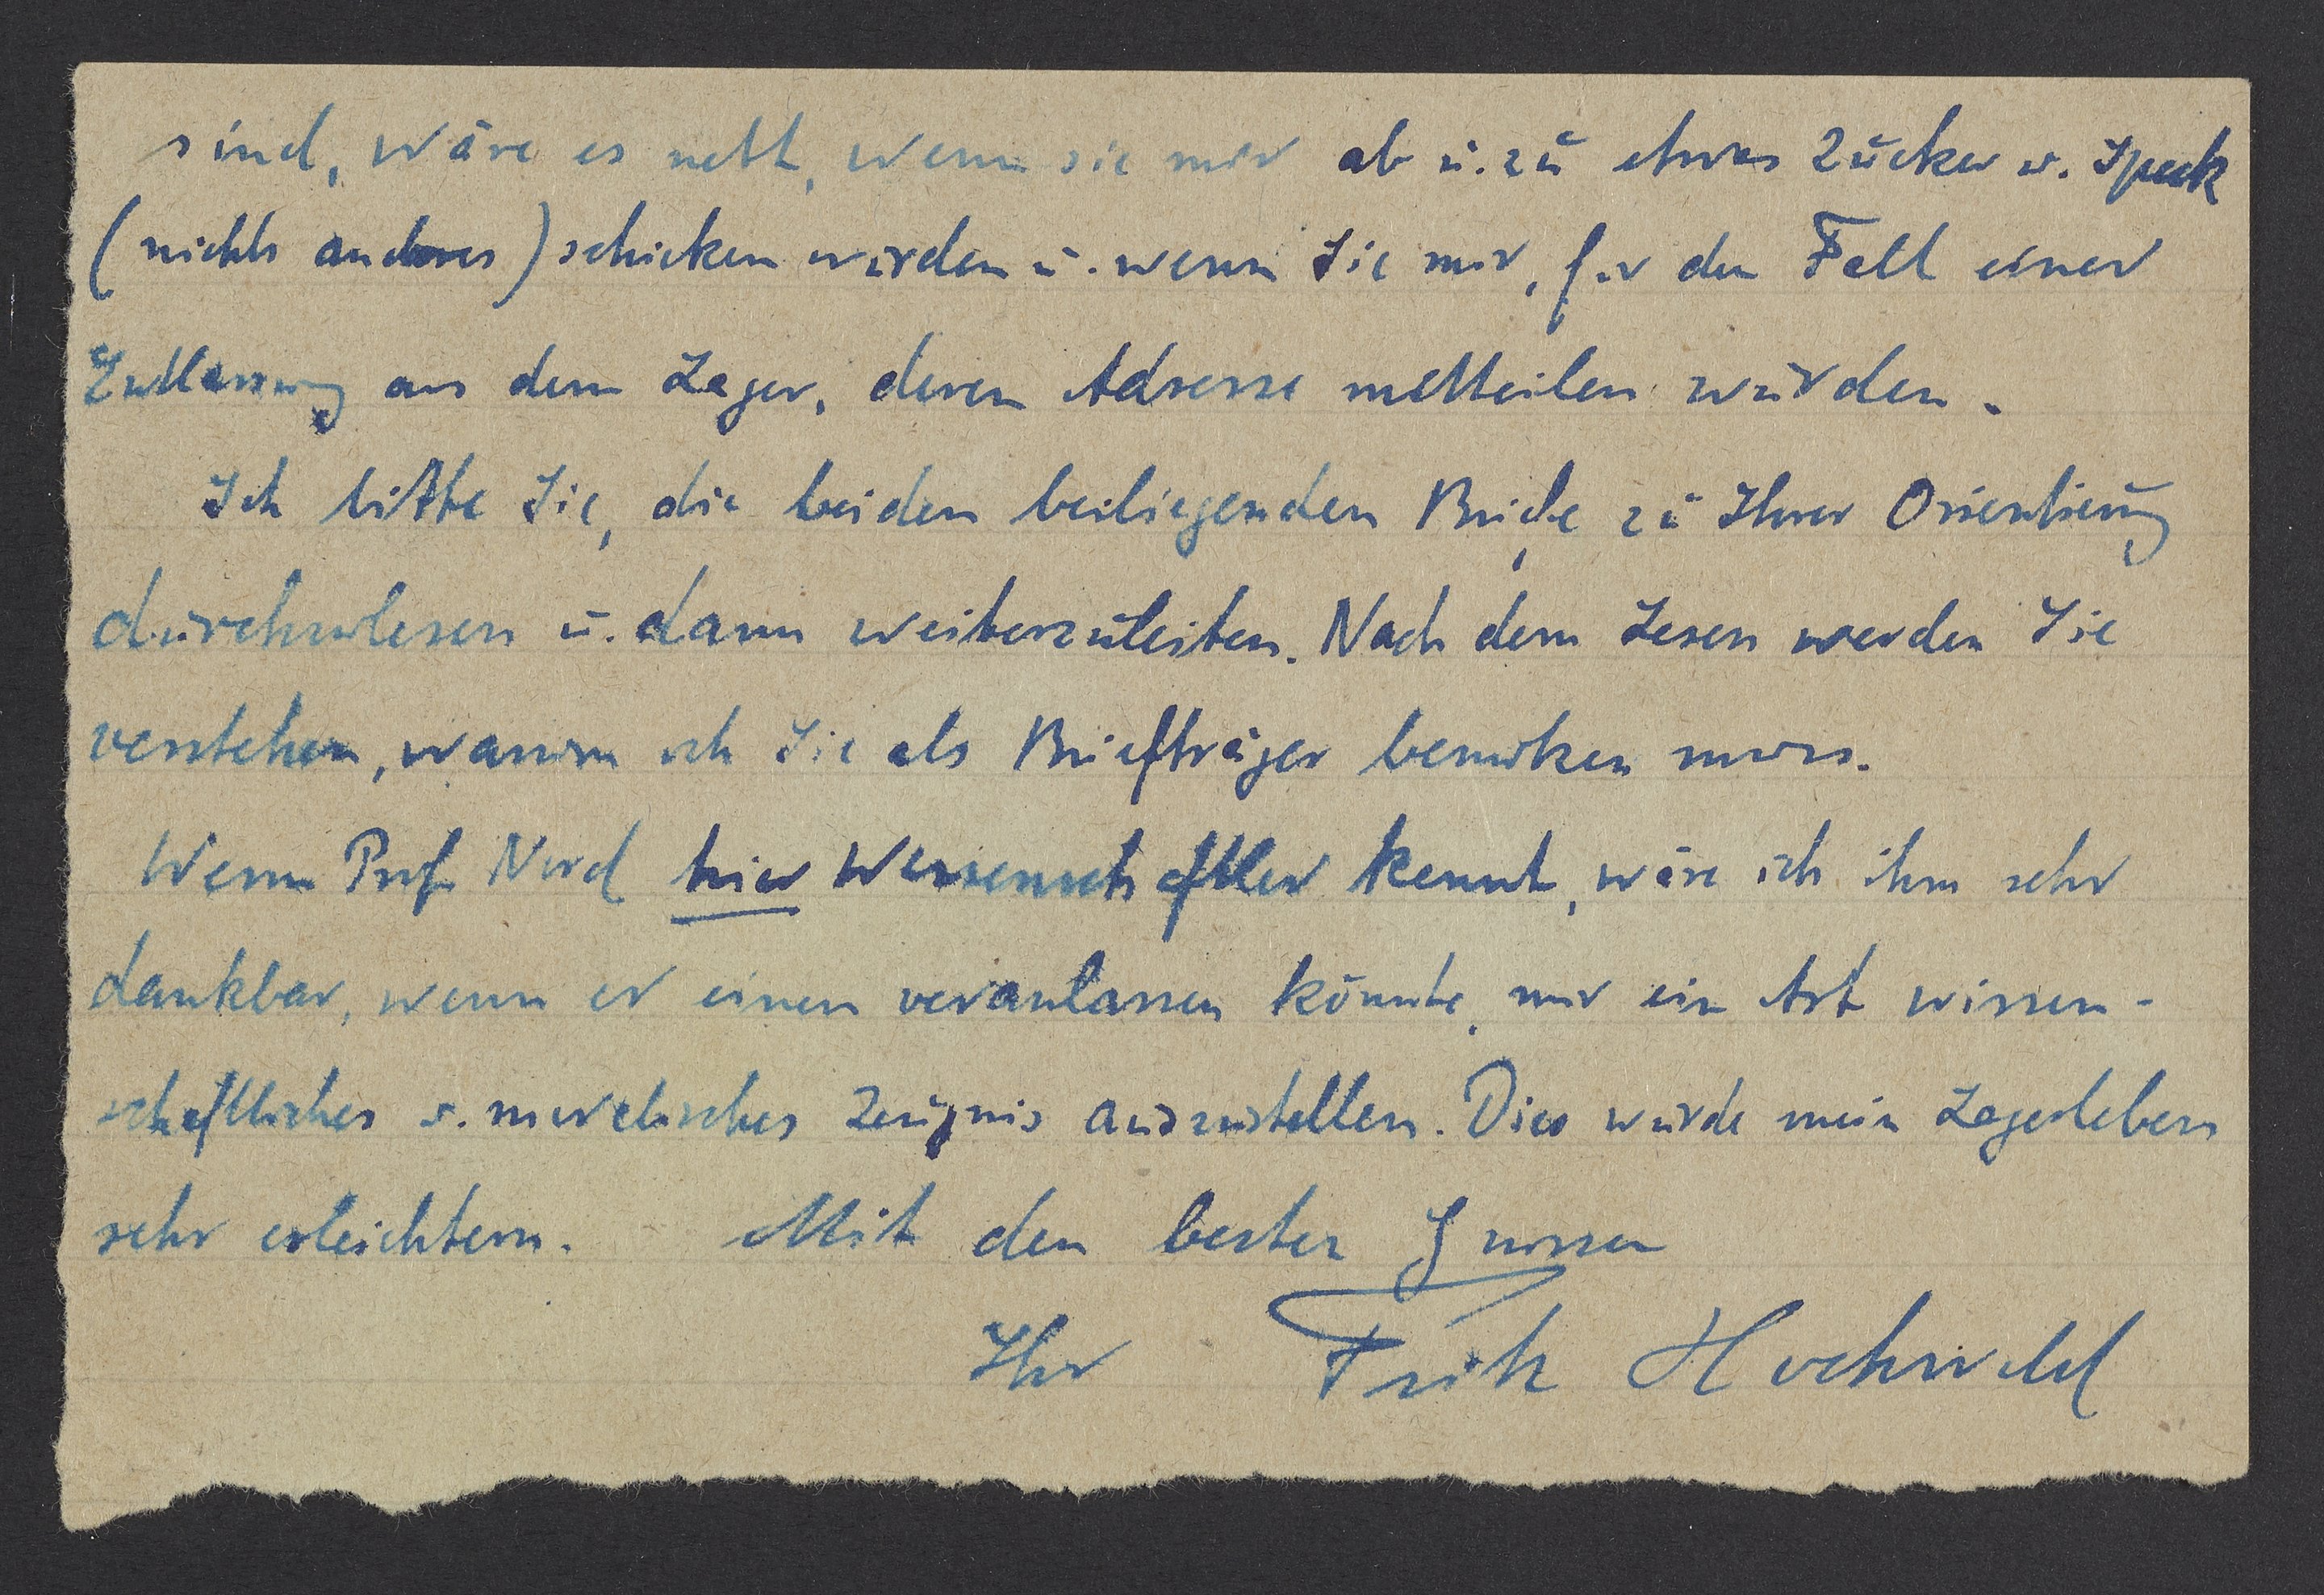 sind, wäre es nett, wenn sie mir ab u. zu etwas Zucker u. Speck
(nichts anderes) schicken würden u. wenn Sie mir, für den Fall einer
Entlassung aus dem Lager, deren Adresse mitteilen würden.
Ich bitte Sie, die beiden beiliegenden Briefe zu Ihrer Orientierung
durchzulesen u. dann weiterzuleiten. Nach dem Lesen werden Sie
verstehen, warum ich Sie als Briefträger benutzen muss.
Wenn Prof. Nord hier Wissenschaftler kennt, wäre ich ihm sehr
dankbar, wenn er einen veranlassen könnte, mir ein Art wissen-
schaftliches u. moralisches Zeugnis auszustellen. Dies würde mein Lagerleben
sehr erleichtern. Mit den besten Grüssen
Ihr Fritz Hochwald